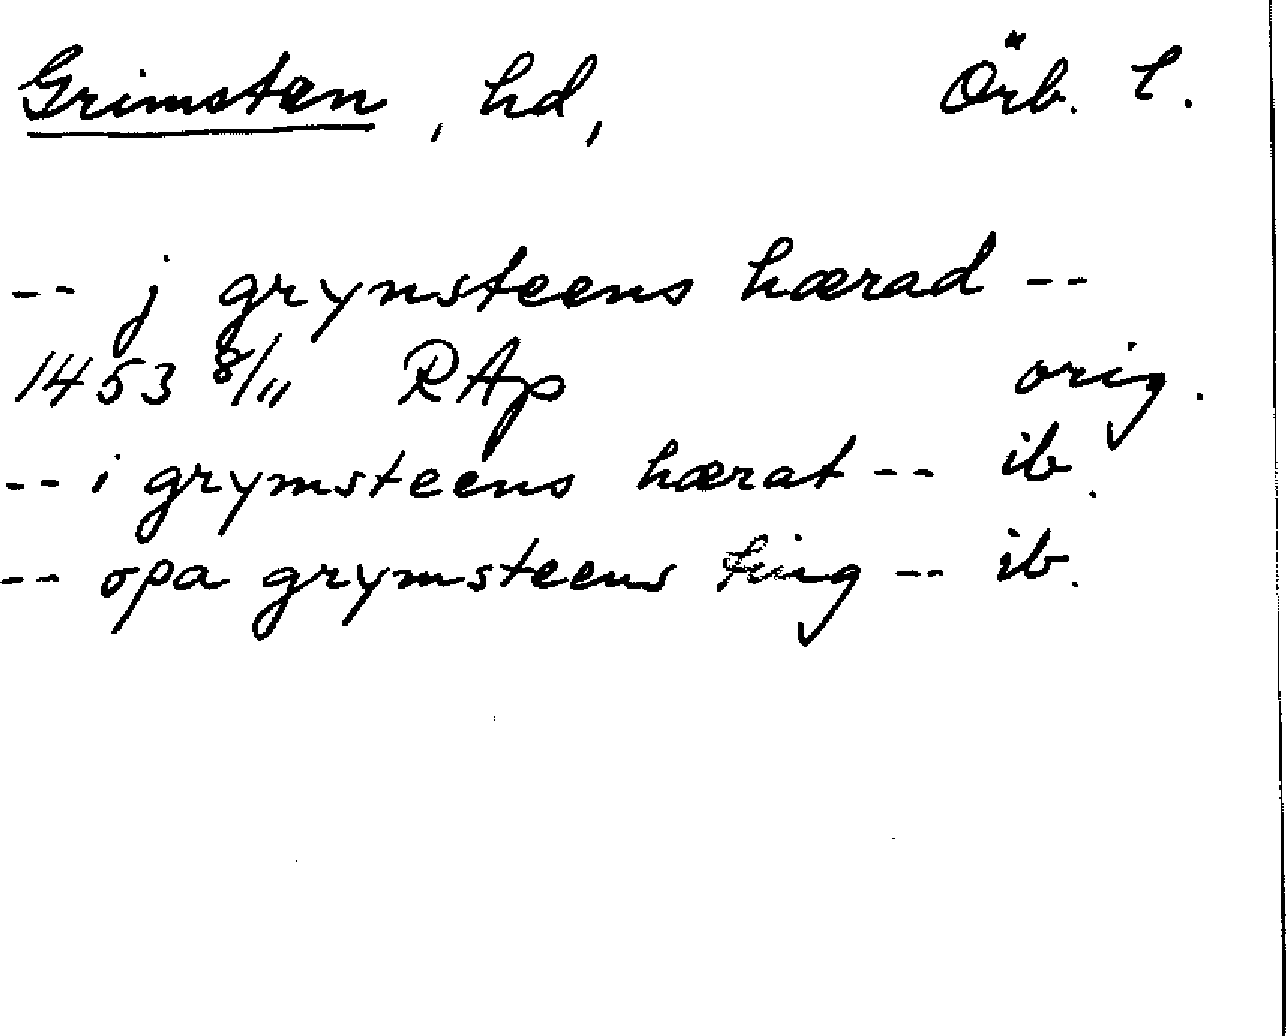 Grimsten, hd, Örb. l.
-- j grymsteens hærad --
1453 8/11 RAp orig.
-- i grymsteens hærat -- ib.
-- opa grymsteens ting -- ib.